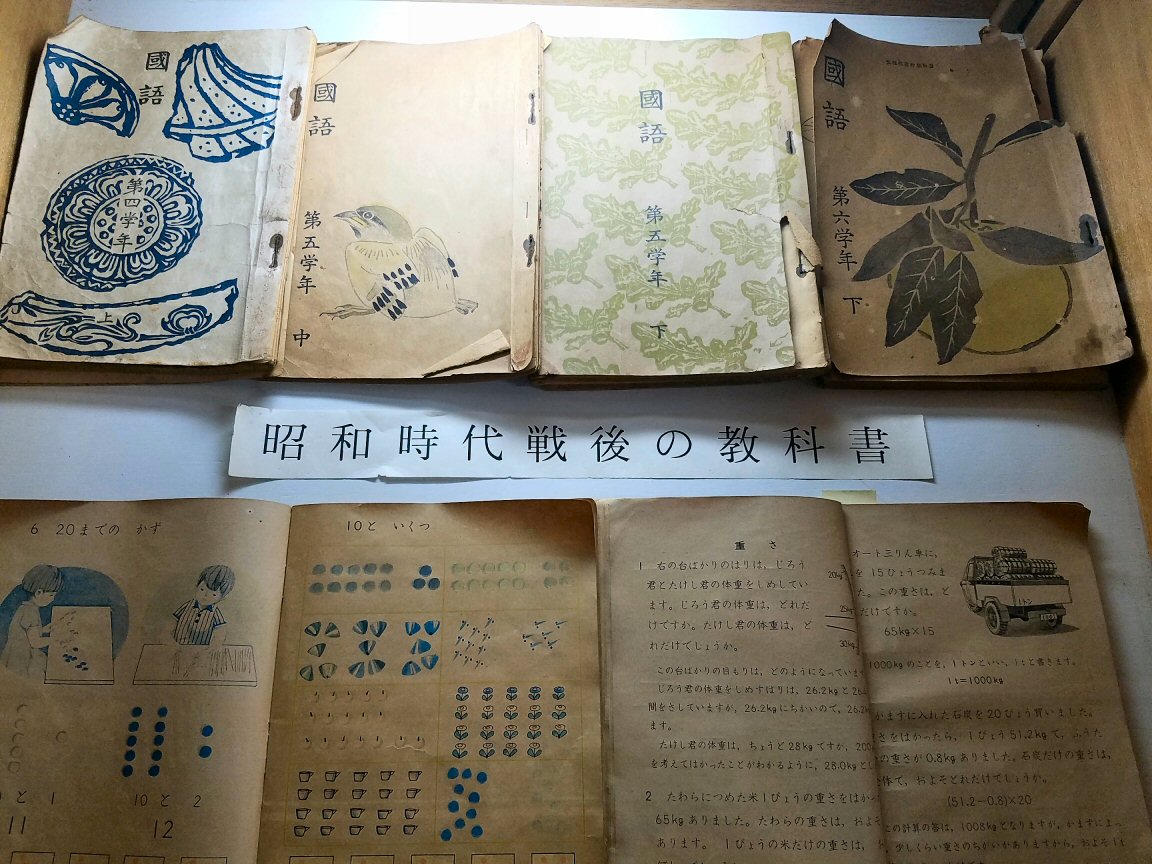 國語
第四学年
上
國語
第五学年
中
國語
第五学年
下
國語
第六学年
下
昭和時代戦後の教科書
6 20までの かず
と 1
11
10 と 2
12
10と いくつ
重さ
1 右の台ばかりのはりは，じろう
君とたけし君の体重をしめしてい
ます。じろう君の体重は，どれだ
けですか。たけし君の体重は，ど
れだけでしょうか。
20kg
25kg
30kg
この台ばかりの目もりは，どのようになっていま
じろう君の体重をしめすはりは，26.2kgと26.
間をさしていますが，26.2kgにちかいので，26.2k
ます。
たけし君の体重は，ちょうど28kgですが，200
を考えてはかったことがわかるように，28.0kgとし
2 たわらにつめた米1ぴょうの重さをはか
65kgありました。たわらの重さは，およそ
あります。1ぴょうの米だけの重さは，
オート三りん車に，
を 15ひょうつみま
た。この重さは，ど
だけですか。
65kg×15
1トン
1000kgのことを，1トンといい，1tと書きます。
1t=1000kg
かますに入れた石炭を20ぴょう買いました。
さをはかったら，1ぴょう51.2kgで，ふうた
の重さが0.8kgありました。石炭だけの重さは，
体で，およそどれだけでしょうか。
(51.2−0.8)×20
この計算の答は，1008kgとなりますが，かますによっ
少しくらい重さのちがいがありますから，およそ1t